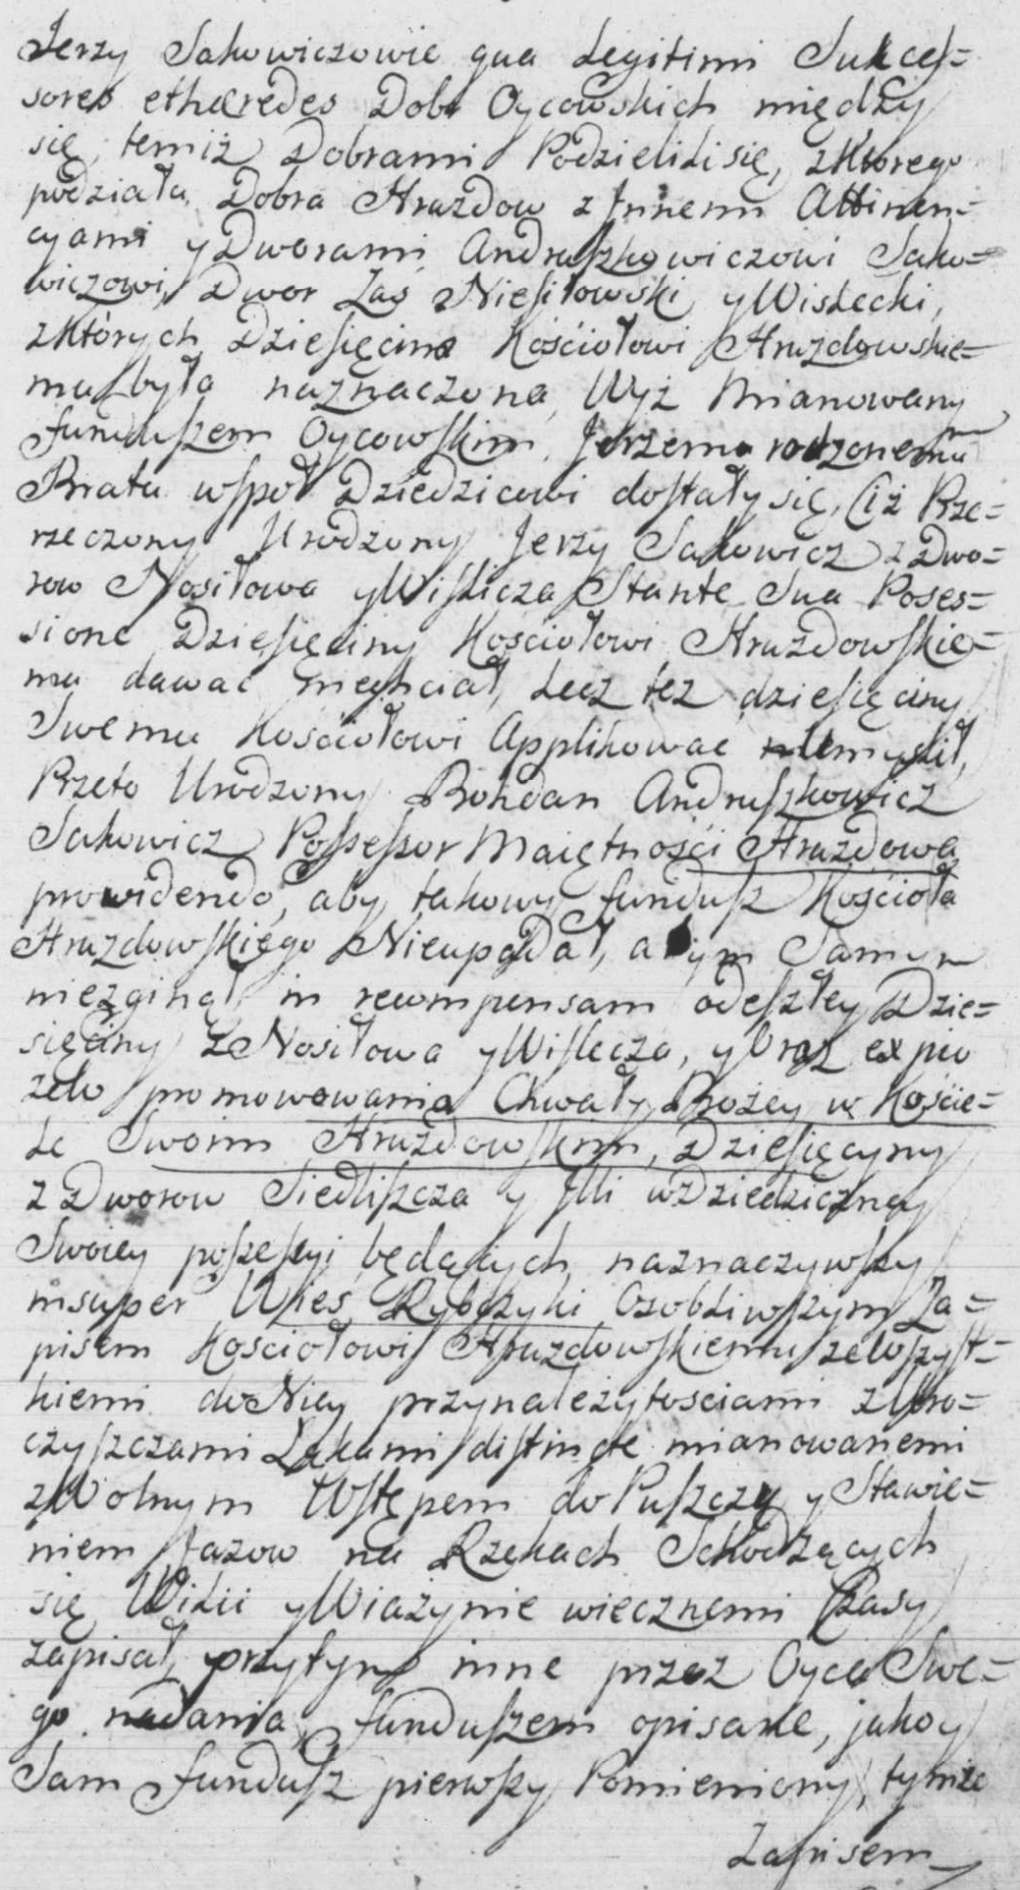 Jerzy Sakowiczowie qua Legitimi Sukceſ=
sores et hæredes Dobr Oycowskich między
się, temiż Dobrami Podzielili się, z którego
podziału, Dobra Hruzdow z Jnnemi Attinen=
cyami y Dworami Andruſzkowiczowi Sako=
wiczowi, Dwor Zas Niesiłowski y Wislecki,
z których Dzieſięcina Kościołowi Hruzdowskie=
mu była naznaczona, Wyż Mianowany
funduſzem Oycowſkim, Jerzemu rodzonemu
Bratu wſpoł Dziedzicowi doſtały się, Iż Prze=
rzeczony Urodzony Jerzy Sakowicz z Dwo=
row Nosiłowa y Wiſlicza Stante Sua Poses=
sione Dzieſięciny Kościołowi Hruzdowſkie=
mu dawać niechciał, Lecz też dzieſięciny
Swemu Kościołowi Applikować umyslił,
Przeto Urodzony Bohdan Andruſzkowicz
Sakowicz Poſseſsor Maiętności Hruzdowa
prowidendo, aby takowy funduſz Kościoła
Hruzdowſkiego Nieupadał, a tym Samym
niezginął, in recompensam odeſzłey Dzie=
sięciny z Nosiłowa y Wiſlecza, y Oraz ex pio
zelo promowowania Chwały Bożey w Koście=
le Swoim Hruzdowſkim, Dzieſięcyny
z Dworow Siedliſzcza y Jlii w Dziedziczney
Swoiey poſseſsyi będących naznaczywſzy
insuper Wies Rybczyki Osobliwſzym Za=
pisem Kościołowi Hruzdowſkiemu ze wſzyſt=
kiemi do Niey przynależytościami z Uro=
czyſzczami Łąkami diſtincte mianowanemi
z Wolnym Wſtępem do Puſzczy y Stawie=
niem Jazow na Rzekach Schodzących
się Wilii y Wiażynie wiecznemi Czasy
zapisał, przytym inne przez Oyca Swe=
go nadania, funduſzem opisane, jako y
Sam funduſz pierwſzy Pomieniony, tymże
Zapisem